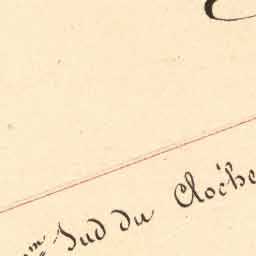 m Sud du Cloche